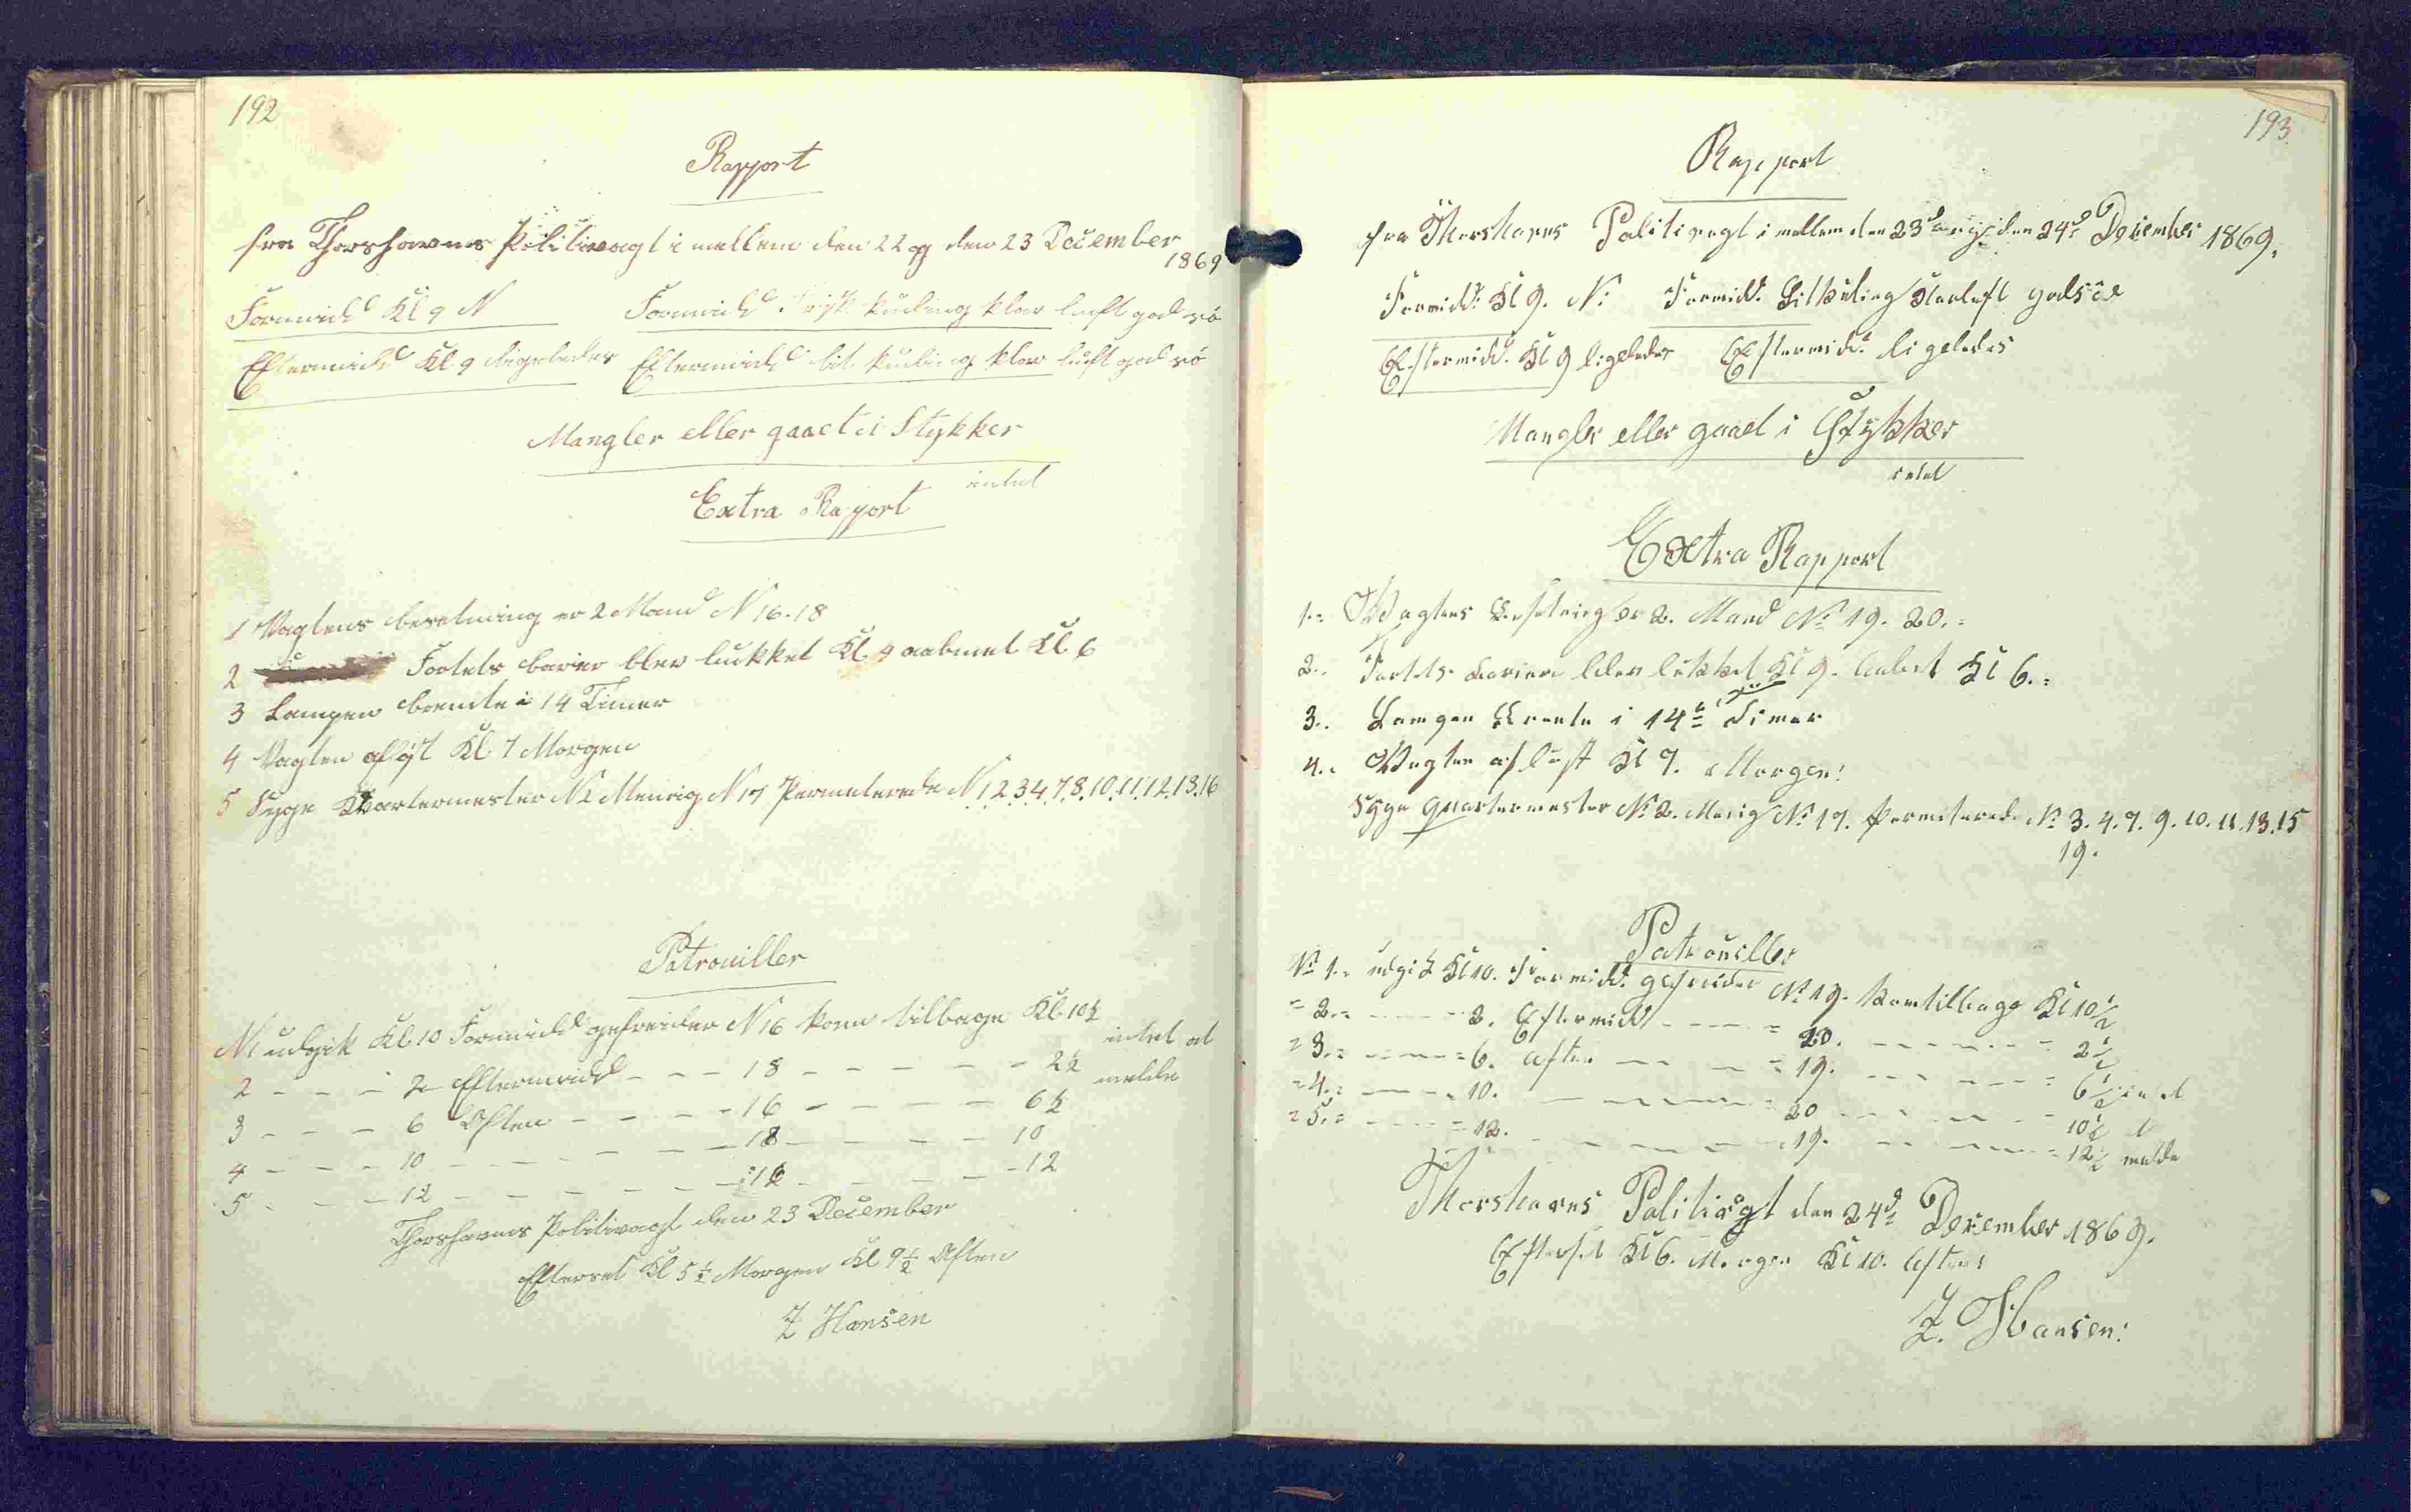 192
Rapport
fra Thorshavns Politivagt i mellem den 22 og den 23 December
1869
Formidd Kl 9 N Formidd Frisk Kuling klar luft god sø
Eftermidd Kl 9 ligeledes Eftermidd lit kuling klar luft god sø
Mangler eller gaaet i Stykker
intet
Extra Rapport
1 Vagtens besetning er 2 Mand N 16-18
2 Fortets barier blev lukket Kl 9 aabnet Kl 6
3 Lampen brendte i 14 Timer
4 Vagten afløst Kl 7 Morgen
5 Syge Kvartermester N 2 Menig N 17 Permeterede N 1.2.3.4.7.8.10.11.12.13.16
Patrouiller
N1 udgik Kl 10 Formidd gefreider N 16 kom tilbage Kl 10½ intet at
2 - - - 2 Eftermidd - - - 18 - - - - - 2½ melde
3 - - - 6 Aften - - - - 16 - - - - 6½
4 - - - 10 - - - - - - 18 - - - - 10
5 - - - 12 - - - - - - 16 - - - - 12
Thorshavns Politivagt den 23 December
Efterset Kl 5½ Morgen Kl 9½ Aften
Z Hansen
193
Rapport
fra Thorshavns Politivagt i mellem den 23d og den 24d December 1869.
Formidd. Kl 9. N: Formidd. Lit Kuling Klarluft god sø
Eftermidd. Kl 9 ligeledes Eftermidd. ligeledes
Mangler eller gaaet i Stykker
intet
Extra Rapport
1.= Vagtens Besetning er 2. Mand No 19. 20.=
2.. Fortets Bariere blev lukket Kl 9. aabnet Kl 6.=
3.. Lampen Brente i 14 Timer
4.. Vagten afløst Kl 7. Morgen!
Syge Quartermester No 2. Menig No 17. Permeterede No 3. 4. 7. 9. 10. 11. 13. 15
19.
Patrouiller
No 1.= udgik Kl 10. Formidd. gefreider No 19. kom tilbage Kl 10½
= 2.= - - - - 2. Eftermidd - - - = 20. - - - - = 2½
= 3.= - - - = 6. Aften - - - = 19. - - - - = 6½ intet
= 4.= - - - = 10. - - - - - 20 - - - - = 10½ at
= 5.= - - - = 12. - - - - - 19. - - - - = 12½ melde
Thorshavns Politivagt den 24d December 1869.
Efterset Kl 6. Morgen Kl 10. Aften
Z. Hansen: